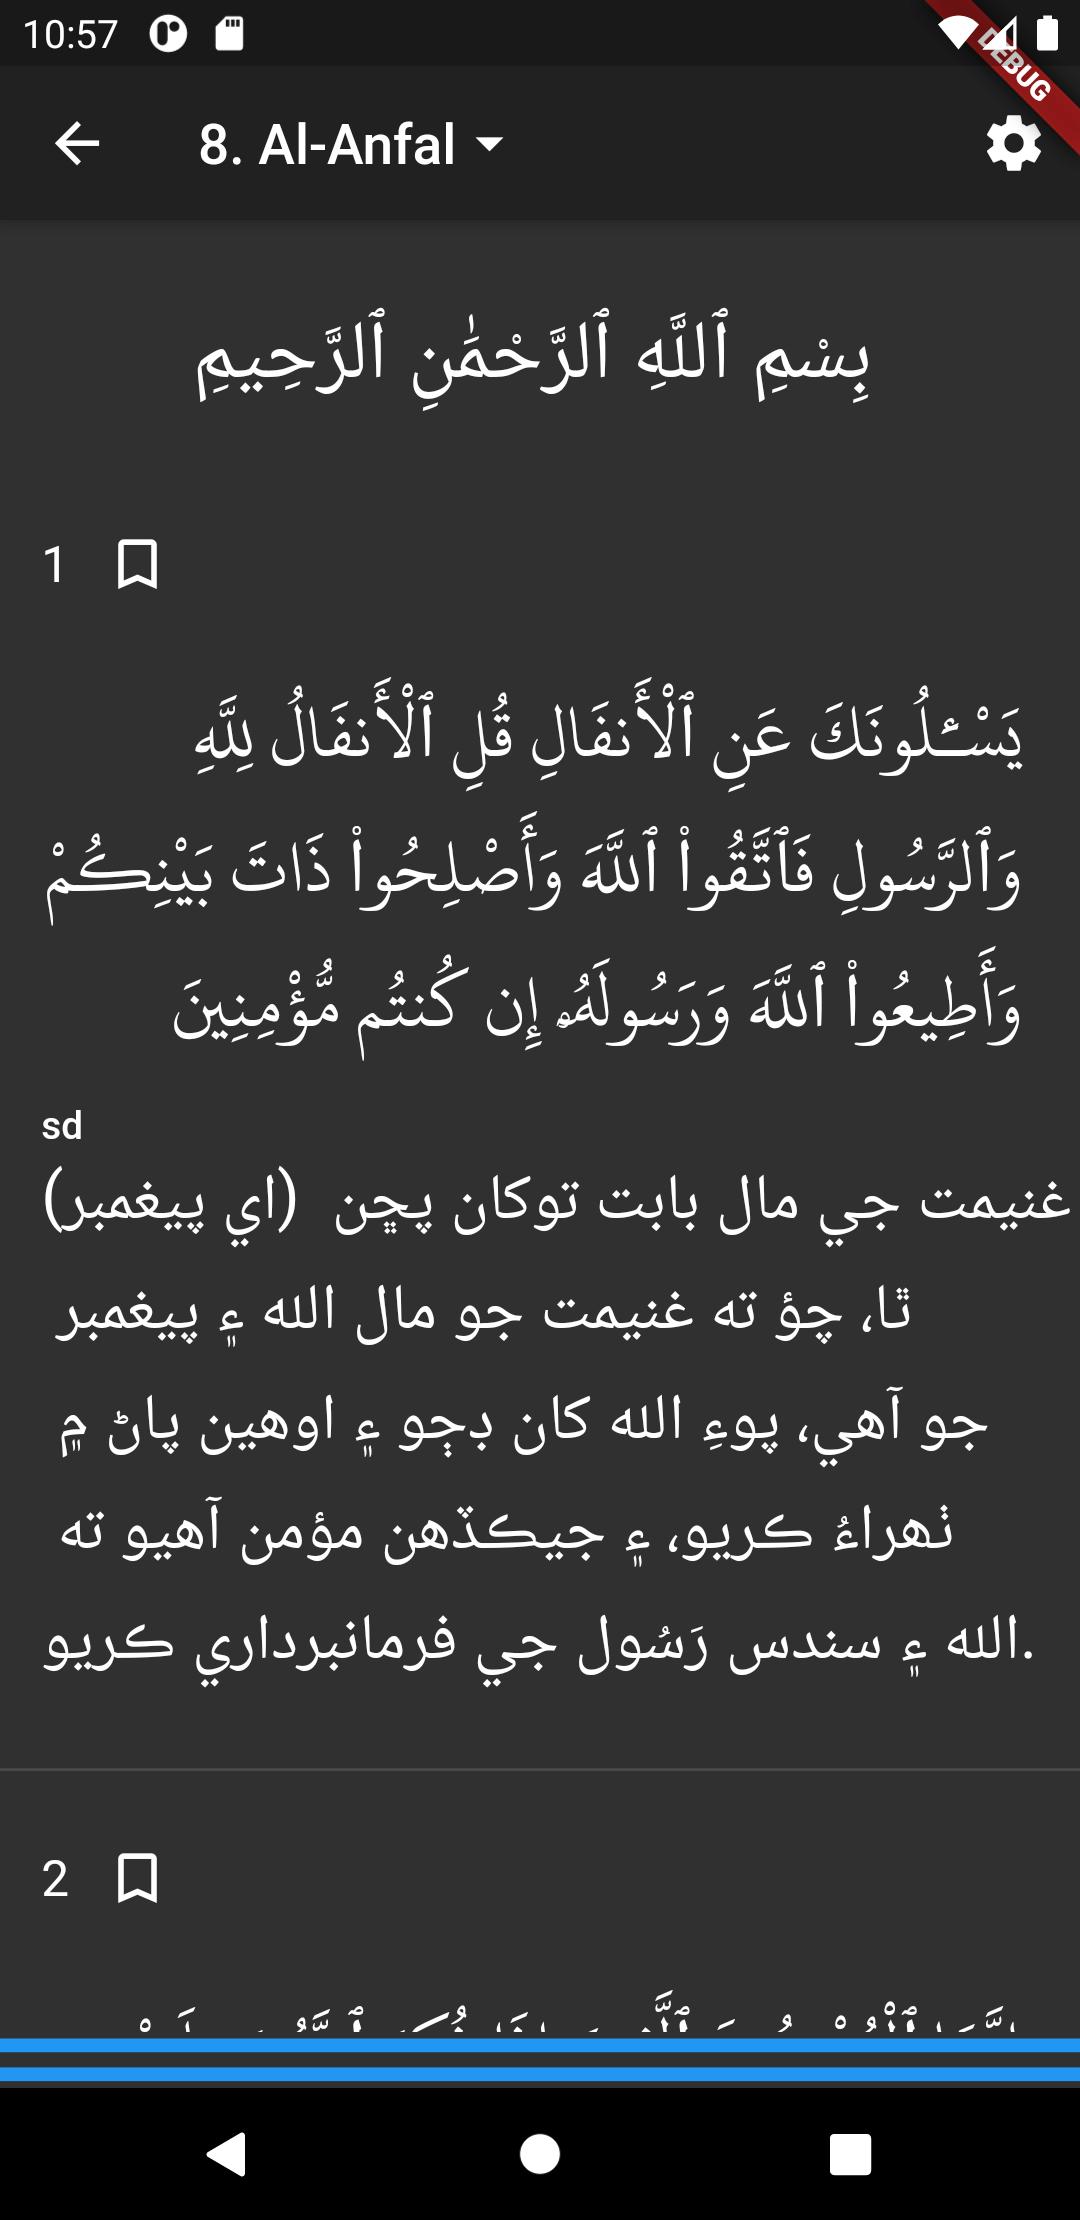 10:57
DEBUG
8. Al-Anfal
بِسْمِ ٱللَّهِ ٱلرَّحْمَٰنِ ٱلرَّحِيمِ
1
يَسْـَٔلُونَكَ عَنِ ٱلْأَنفَالِ قُلِ ٱلْأَنفَالُ لِلَّهِ
وَٱلرَّسُولِ فَٱتَّقُوا۟ ٱللَّهَ وَأَصْلِحُوا۟ ذَاتَ بَيْنِكُمْ
وَأَطِيعُوا۟ ٱللَّهَ وَرَسُولَهُۥ إِن كُنتُم مُّؤْمِنِينَ
sd
(اي پيغمبر) غنيمت جي مال بابت توکان پڇن
ٿا، چؤ ته غنيمت جو مال الله ۽ پيغمبر
جو آھي، پوءِ الله کان ڊڄو ۽ اوھين پاڻ ۾
ٺھراءُ ڪريو، ۽ جيڪڏھن مؤمن آھيو ته
الله ۽ سندس رَسُول جي فرمانبرداري ڪريو.
2